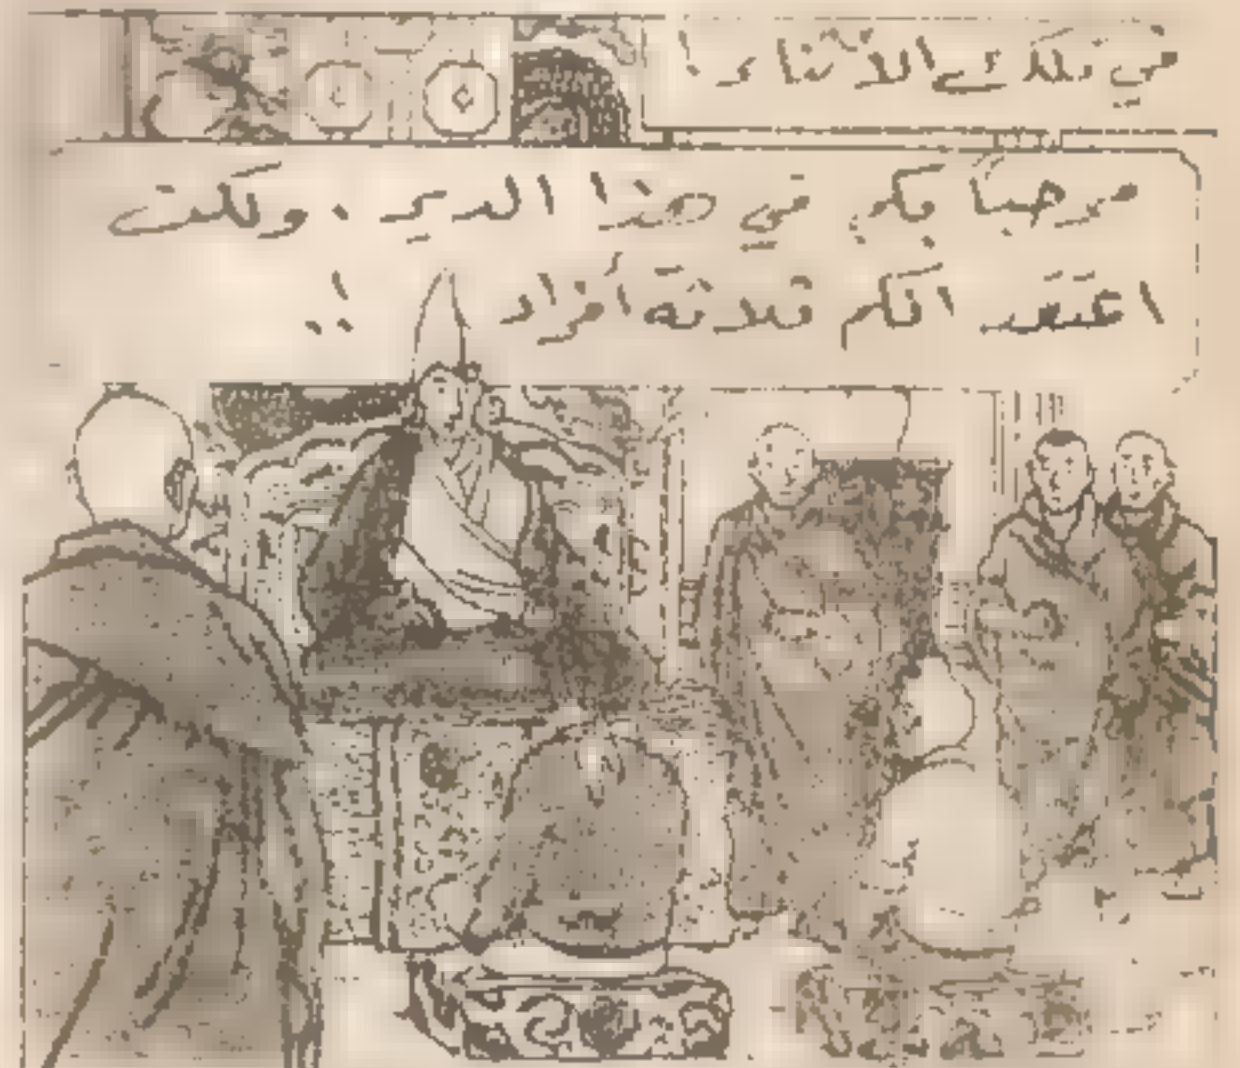 في تلك الأثناء !
مرحباً بكم في هذا الدير . ولكن
اعتقد انكم ثلاثة أفراد !!